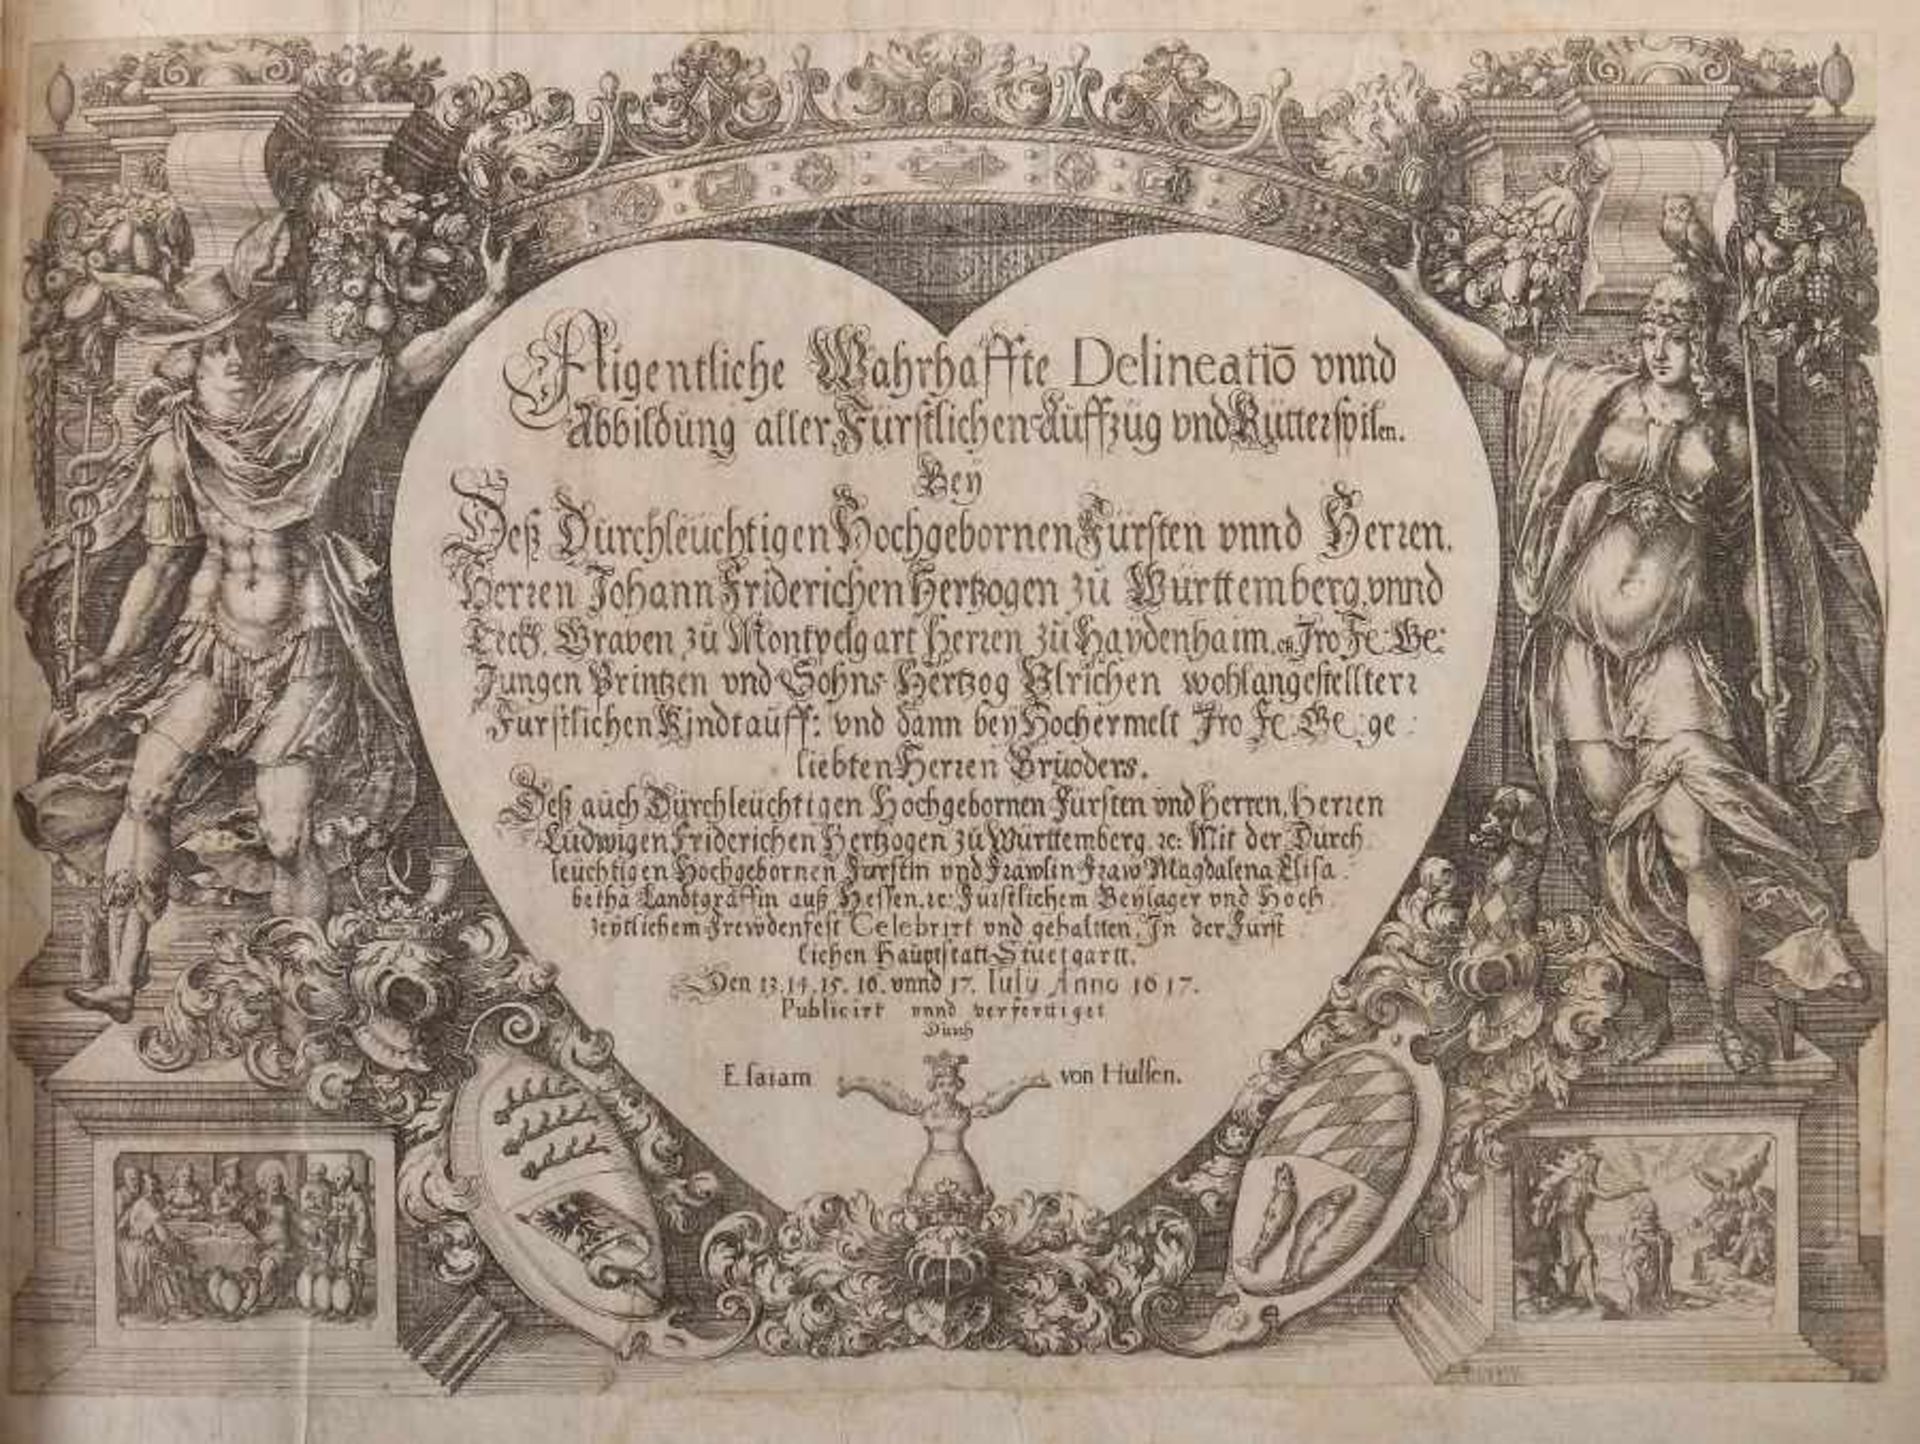 Aigentliche Wahrhaffte Delineatiō vnnd
Abbildung aller Fürstlichen Auffzüg vnd Rütterspilen.
Bey
Deß Durchleüchtigen Hochgebornen Fürsten vnnd Herren,
Herren Johann Friderichen Hertzogen zü Württemberg, vnnd
Teckh, Graven zü Montpelgart Herren zü Haydenhaim, ec. Iro Fe: Ge:
Jungen Printzen vnd Sohns Hertzog Vlrichen wohlangestellter
Fürstlichen Kindtauff: vnd dann bey Hochermelt Iro Fe. Ge. ge:
liebten Herren Brüoders.
Deß auch Dürchleüchtigen Hochgebornen Fürsten vnd Herren, Herren
Ludwigen Friderichen Hertzogen zü Württemberg. ec: Mit der Durch
leüchtigen Hochgebornen Fürstin vnd Frawlin Fraw Magdalena Elisa.
betha Landtgräffin auß Hessen. ec: Fürstlichem Beylager vnd Hoch
zeytlichem Frewdenfest Celebrirt vnd gehaltten, In der Fürst
lichen Hauptstatt Stuetgartt.
Den 13. 14. 15. 16. vnnd 17. Iuly Anno 1617.
Publicirt vnnd verferttiget
Durch
Esaiam von Hulsen.